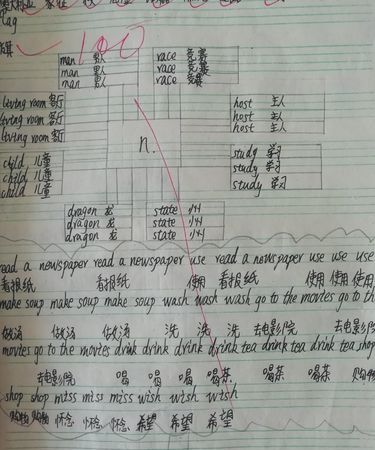 flag
100
man 男人
man 男人
man 男人
race 竞赛
race 竞赛
race 竞赛
living room 客厅
living room 客厅
living room 客厅
host 主人
host 主人
host 主人
n.
child 儿童
child 儿童
child 儿童
study 学习
study 学习
study 学习
dragon 龙
dragon 龙
dragon 龙
state 州
state 州
state 州
read a newspaper read a newspaper use read a newspaper use use use
看报纸 看报纸 使用 看报纸 使用 使用 使用
make soup make soup make soup wash wash wash go to the movies go to th
做汤 做汤 做汤 洗 洗 洗 去电影院 去电影院
movies go to the movies drink drink drink drink tea drink tea drink tea shop
去电影院 喝 喝 喝 喝茶 喝茶 喝茶 购物
shop shop miss miss miss wish wish wish
购物 购物 怀念 怀念 怀念 希望 希望 希望